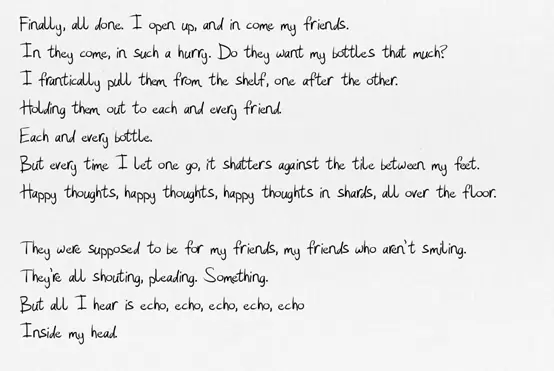 Finally, all done. I open up, and in come my friends.
In they come, in such a hurry. Do they want my bottles that much?
I frantically pull them from the shelf, one after the other.
Holding them out to each and every friend.
Each and every bottle.
But every time I let one go, it shatters against the tile between my feet.
Happy thoughts, happy thoughts, happy thoughts in shards, all over the floor.
They were supposed to be for my friends, my friends who aren't smiling.
They're all shouting, pleading. Something.
But all I hear is echo, echo, echo, echo, echo
Inside my head.